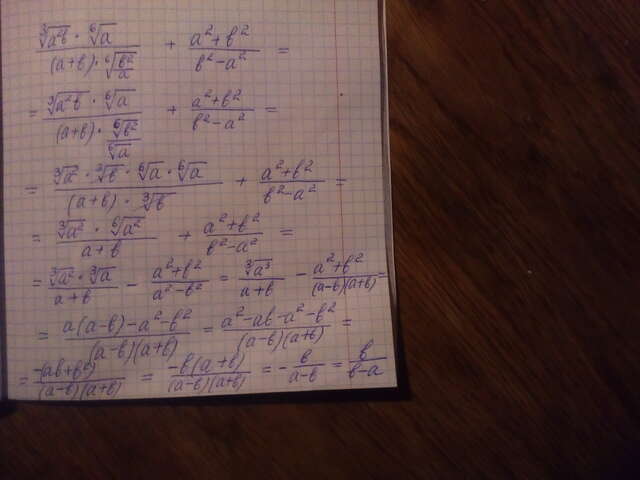 ∛(a²b) · ⁶√a / ((a+b) · ⁶√(b²/a)) + (a²+b²)/(b²−a²) =
= ∛(a²b) · ⁶√a / ((a+b) · ⁶√b²/⁶√a) + (a²+b²)/(b²−a²) =
= ∛a² · ∛b · ⁶√a · ⁶√a / ((a+b) · ∛b) + (a²+b²)/(b²−a²) =
= ∛a² · ⁶√a² / (a+b) + (a²+b²)/(b²−a²) =
= ∛a² · ∛a / (a+b) − (a²+b²)/(a²−b²) = ∛a³/(a+b) − (a²+b²)/((a−b)(a+b)) =
= (a(a−b)−a²−b²)/((a−b)(a+b)) = (a²−ab−a²−b²)/((a−b)(a+b)) =
= −(ab+b²)/((a−b)(a+b)) = −b(a+b)/((a−b)(a+b)) = −b/(a−b) = b/(b−a)